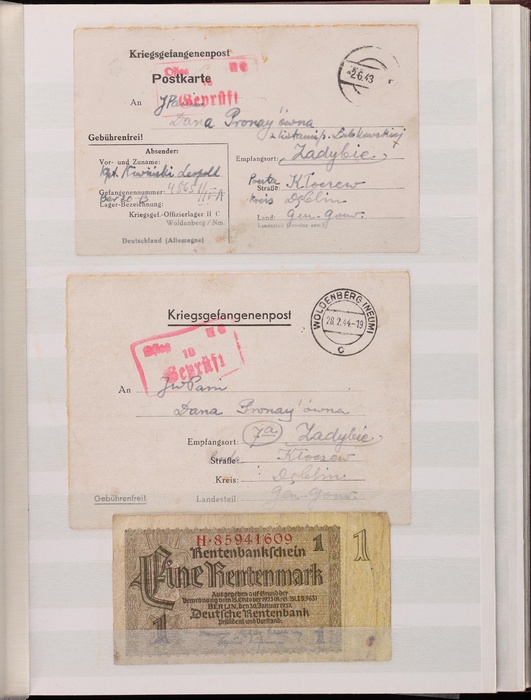 Kriegsgefangenenpost
2.6.43
Oflag II C
10
Geprüft
Postkarte
An
Dana Pronay'ówna
Gebührenfrei!
Absender:
Vor- und Zuname:
Gefangenennummer:
Lager-Bezeichnung:
Kriegsgef.-Offizierlager II C
Woldenberg / Nm.
Deutschland (Allemagne)
Empfangsort: Zadybie
Straße: Kłoczew
Kreis Dęblin
Land: Gen. Gouv.
Kriegsgefangenenpost
WOLDENBERG (NEUM)
28.2.44-19
c
Oflag II C
10
Geprüft
An JWPani
Dana Pronay'ówna
Empfangsort: 7a Zadybie
Straße: Kłoczew
Kreis: Dęblin
Gebührenfrei! Landesteil: Gen-Gouv
H·85941609
Rentenbankschein 1 1
Eine Rentenmark
Ausgegeben auf Grund der
Verordnung vom 15. Oktober 1923 (R.G.Bl.I S.963)
BERLIN, den 30. Januar 1937
Deutsche Rentenbank
Präsident und Vorstand:
1 1